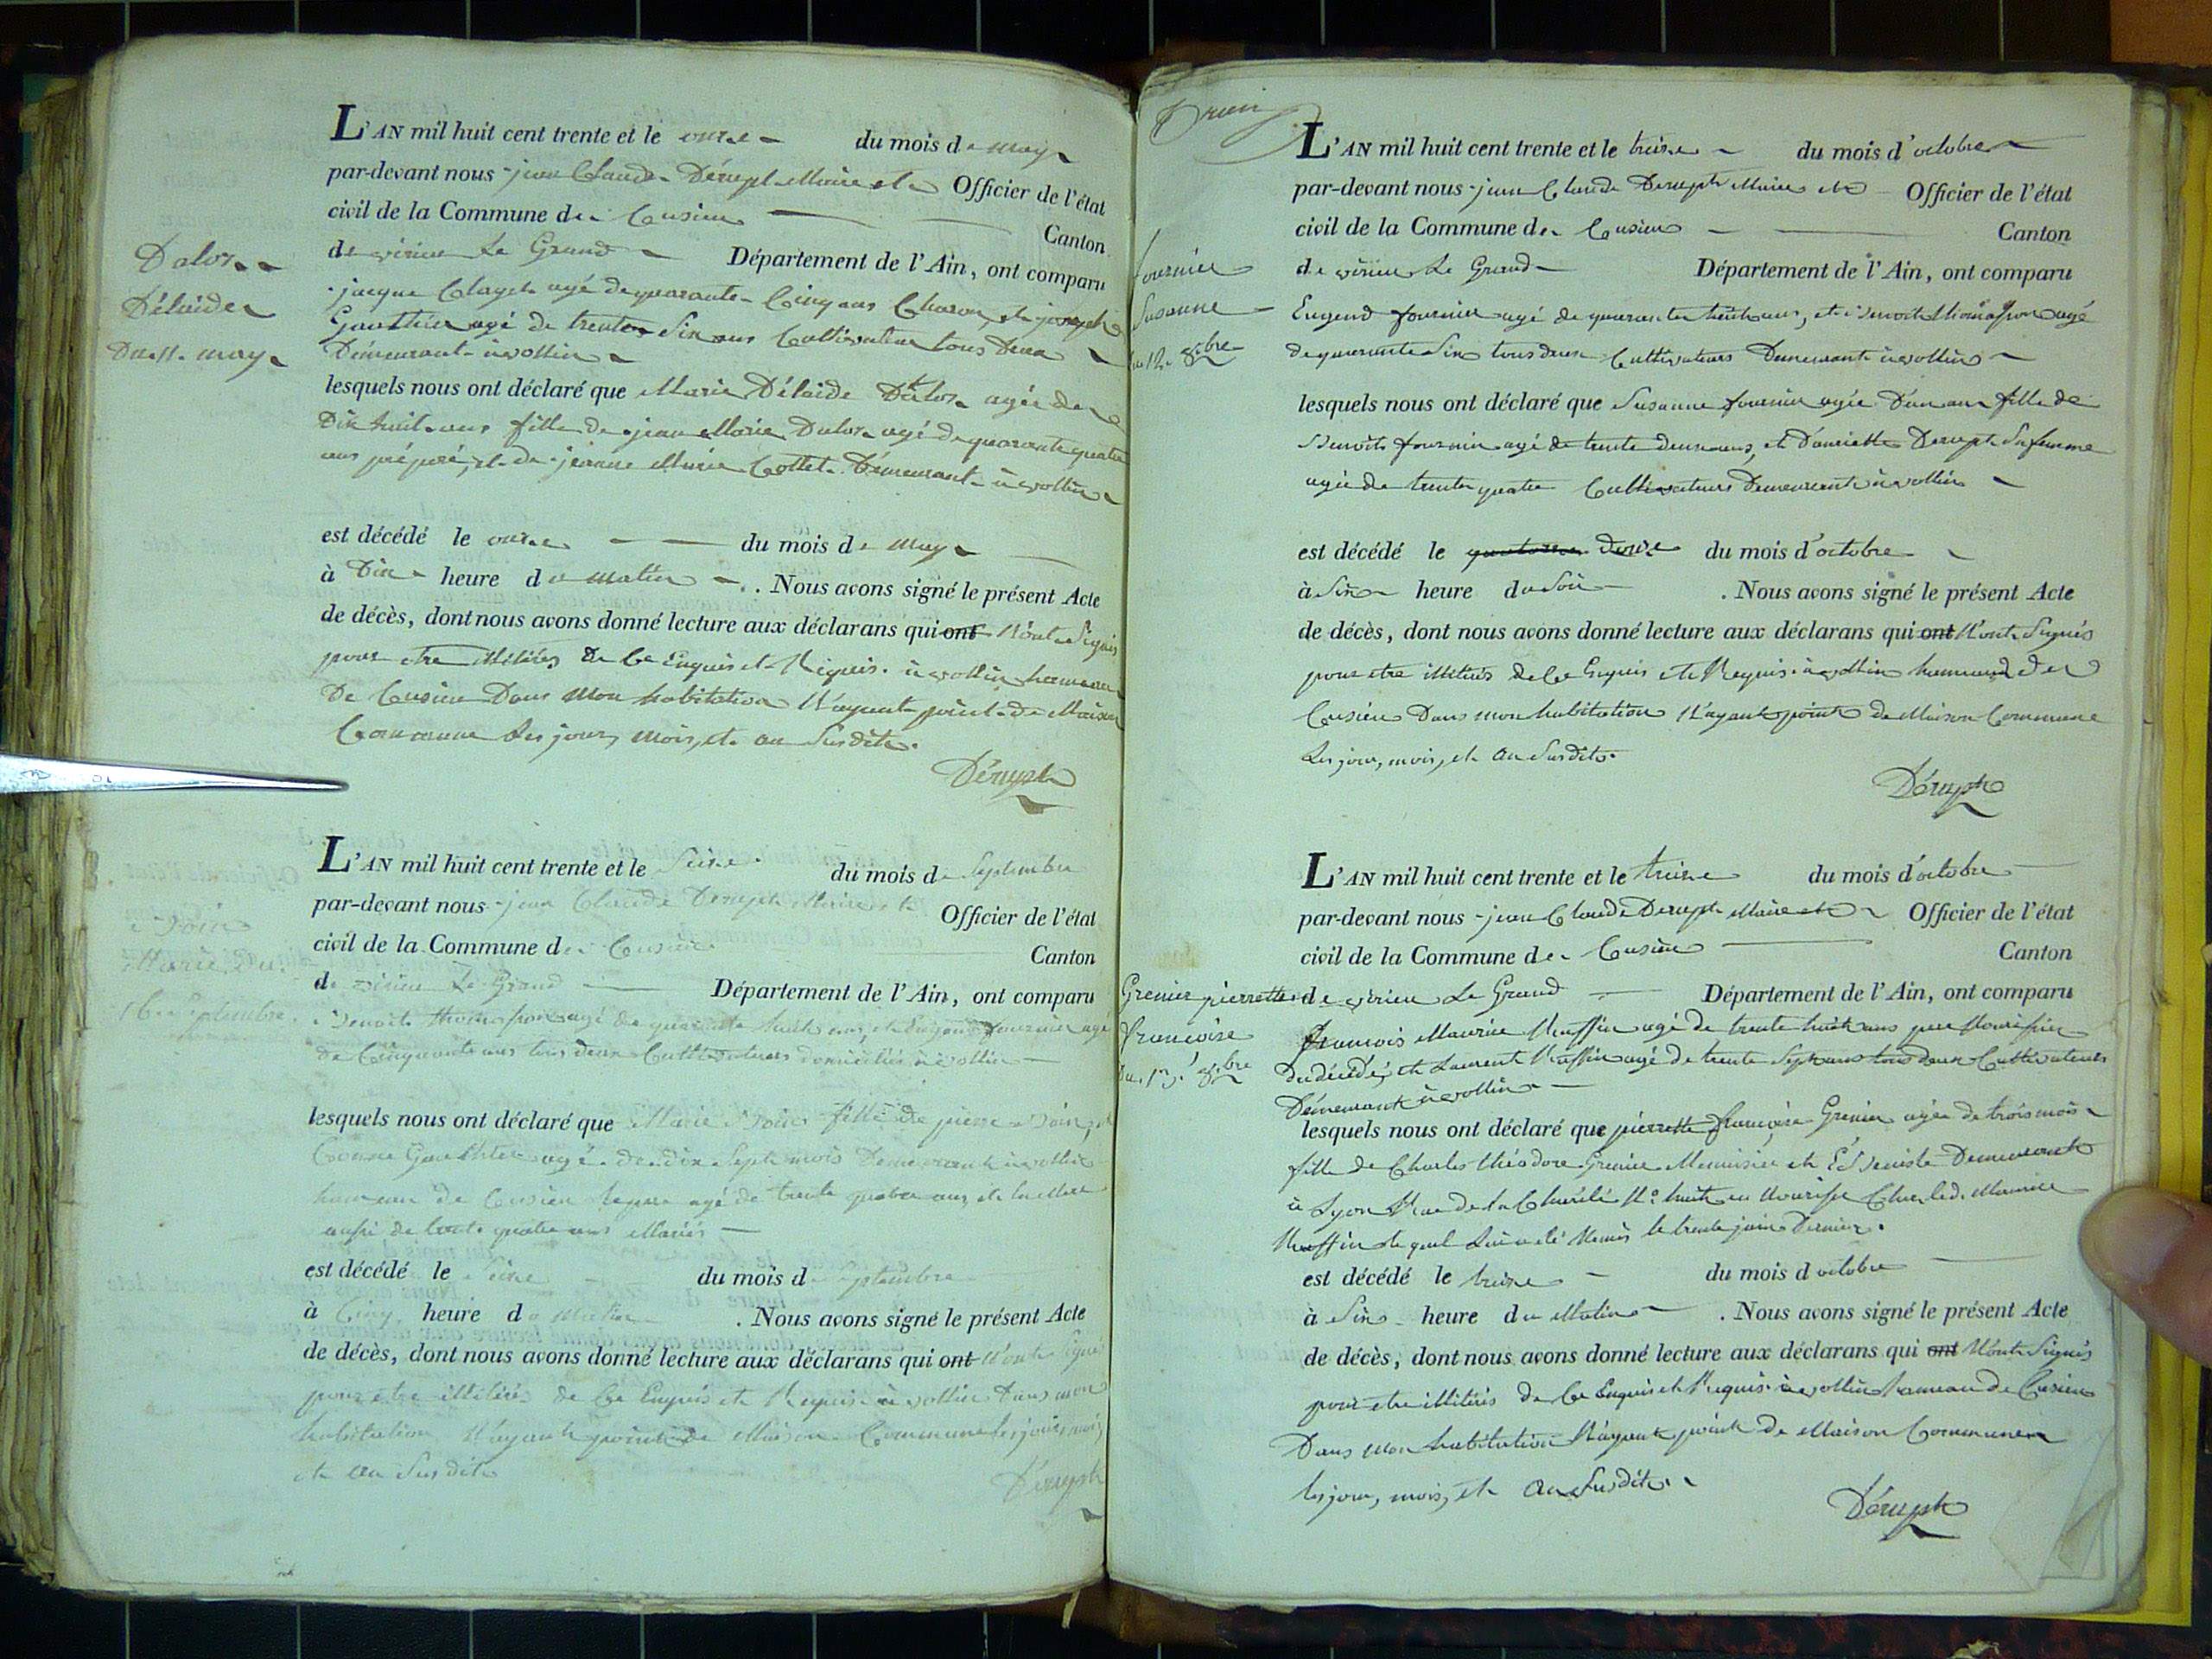 L'AN mil huit cent trente et le onze du mois de may
par-devant nous jean Claude Déruph Maire et Officier de l'état
civil de la Commune de Cusieu Canton
de virieu Le Grand Département de l'Ain, ont comparu
jacque Clayet agé de quarante Cinq ans Charon, et joseph
Gauthier agé de trente Six ans Cultivateur tous Deux
Démeurant à vollin
lesquels nous ont déclaré que Marie Délaide Daloz agée de
Dix huit ans fille de jean Marie Daloz agé de quarante quatre
ans préposé, et de jeanne Marie Cottet Démeurant à vollin
est décédé le onze du mois de may
à Dix heure du matin . Nous avons signé le présent Acte
de décès, dont nous avons donné lecture aux déclarans qui ont N'ont Signés
pour etre illitérés De Ce Enquis et Requis. à vollin hameau
De Cusieu Dans Mon habitation N'ayant point de Maison
Commune Les jour, mois, et an Susdits.
Déruph
Daloz
Délaide
Du 11 may
L'AN mil huit cent trente et le Seize du mois de Septembre
par-devant nous jean Claude Deruph Maire et Officier de l'état
civil de la Commune de Cusieu Canton
de virieu Le Grand Département de l'Ain, ont comparu
Benoit agé de quarante huit ans, et Eugend fournier agé
de Cinquante ans tous deux Cultivateurs domiciliés à vollin
lesquels nous ont déclaré que Marie fille de pierre et
Gauthier agé de dix Sept mois Demeurant à vollin
hameau de Cusieu Le pere agé de trente quatre ans, et la Mere
aussi de trente quatre ans Mariés
est décédé le Seize du mois de Septembre
à Cinq heure du Matin . Nous avons signé le présent Acte
de décès, dont nous avons donné lecture aux déclarans qui ont N'ont Signés
pour etre illitérés de Ce Enquis et Requis à vollin Dans mon
habitation N'ayant point de Maison Commune les jour, mois,
et an Susdits
Déruph
Marie Du
16 Septembre
L'AN mil huit cent trente et le treize du mois d'octobre
par-devant nous jean Claude Deruph Maire et Officier de l'état
civil de la Commune de Cusieu Canton
de virieu Le Grand Département de l'Ain, ont comparu
Eugend fournier agé de quarante huit ans, et Benoit agé
de quarante Six tous deux Cultivateurs Demeurant à vollin
lesquels nous ont déclaré que Susanne fournier agée D'un an fille de
Benoit fournier agé de trente deux ans, et Deruph Sa femme
agée de trente quatre Cultivateurs Demeurant à vollin
est décédé le quatorze Douze du mois d'octobre
à Six heure du Soir . Nous avons signé le présent Acte
de décès, dont nous avons donné lecture aux déclarans qui ont N'ont Signés
pour etre illitérés de Ce Enquis et Requis. à vollin hameau de
Cusieu Dans mon habitation N'ayant point de Maison Commune
Les jour, mois, et an Susdits.
Déruph
fournier
Susanne
du 12 8bre
L'AN mil huit cent trente et le treize du mois d'octobre
par-devant nous jean Claude Deruph Maire et Officier de l'état
civil de la Commune de Cusieu Canton
de virieu Le Grand Département de l'Ain, ont comparu
françois Maurice Ruffin agé de trente huit ans pere Nourissier
du décédé, et Laurent Ruffin agé de trente Sept ans tous deux Cultivateurs
Démeurant à vollin
lesquels nous ont déclaré que pierrette françoise Grenier agée de trois mois
fille de Charles théodore Grenier Menuisier et Ebéniste Demeurant
à Lyon Rue de la Charité N° huit en Nourisse Chez led. Maurice
Ruffin le quel Lui a été Remis le trente juin Dernier.
est décédé le treize du mois d octobre
à Six heure du Matin . Nous avons signé le présent Acte
de décès, dont nous avons donné lecture aux déclarans qui ont N'ont Signés
pour etre illitérés de Ce Enquis et Requis. à vollin hameau de Cusieu
Dans Mon habitation N'ayant point de Maison Commune
les jour, mois, et An Susdits.
Déruph
Grenier pierrette
françoise
Du 13 8bre